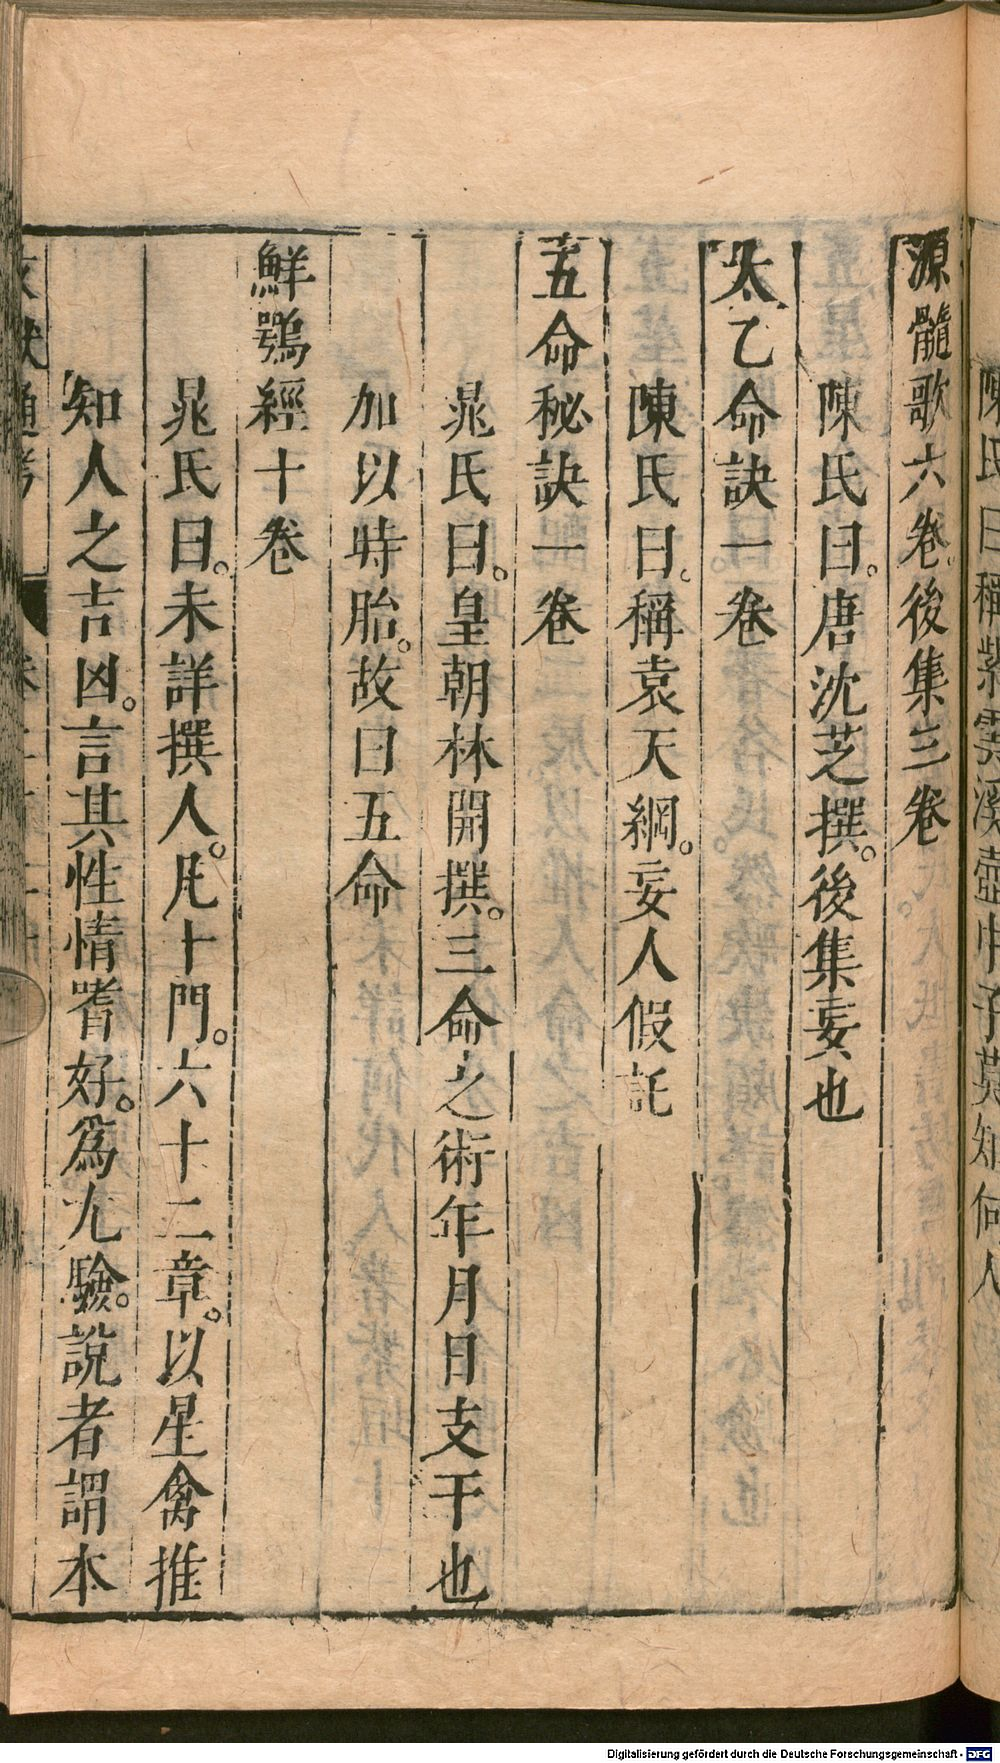 陳氏曰稱紫雲溪壺中子莫知何人
源髓歌六卷。後集三卷
陳氏曰。唐沈芝撰。後集妄也
太乙命訣一卷
陳氏曰。稱袁天綱。妄人假託
五命秘訣一卷
晁氏曰。皇朝林開撰。三命之術年月日支干也
加以時胎。故曰五命
鮮鶚經十卷
晁氏曰。未詳撰人。凡十門。六十二章。以星禽推
知人之吉凶。言其性情嗜好。爲尤驗。說者謂本
文獻通考
Digitalisierung gefördert durch die Deutsche Forschungsgemeinschaft - DFG